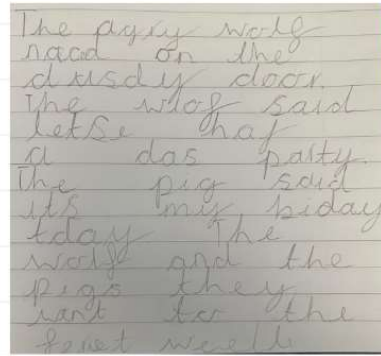 The agry wolf
nacd on the
dusdy door.
The wlof said
letse haf
a das party.
The pig said
its my biday
tday The
wolf and the
pigs they
want to the
foret well